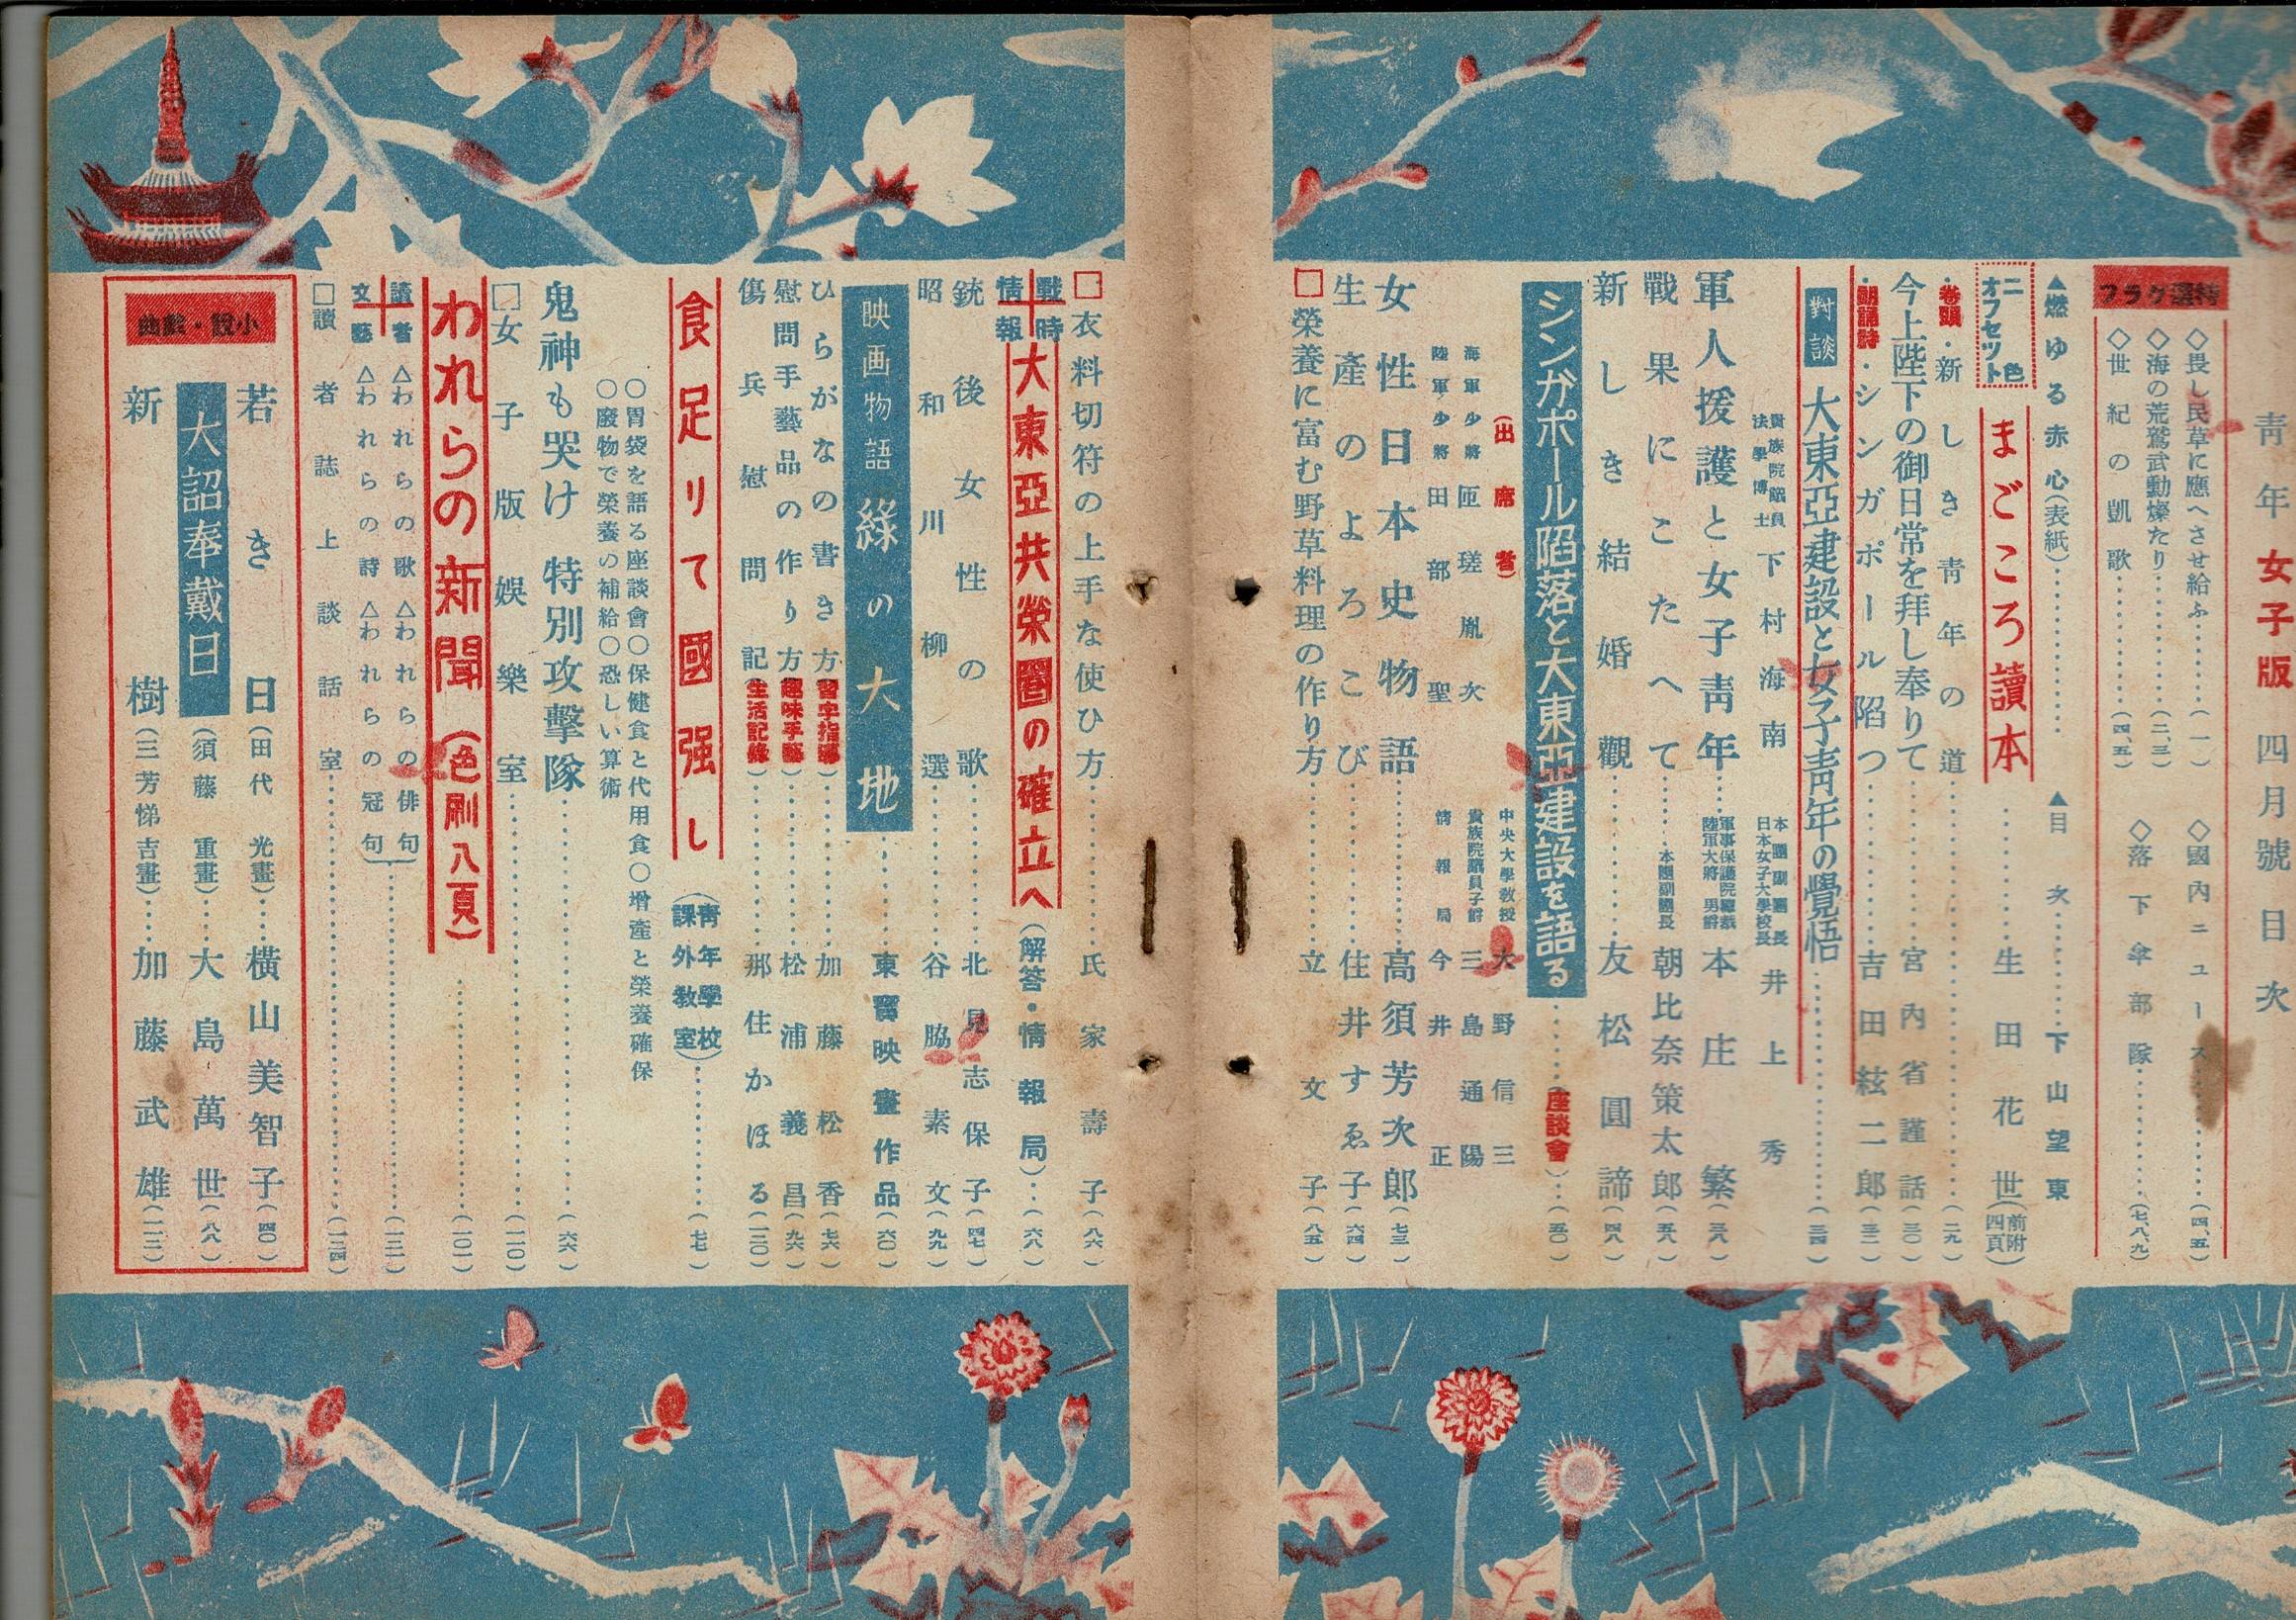 青年女子版 四月號目次
特選グラフ
◇畏し民草に應へさせ給ふ……(一)
◇海の荒鷲武勳燦たり……(二、三)
◇世紀の凱歌……(四、五)
◇國内ニュース……(四、五)
◇落下傘部隊……(七、八、九)
▲燃ゆる赤心(表紙)……▲目次……下山望東
二色オフセット
まごころ讀本……生田花世(前附四頁)
・卷頭・新しき青年の道……(二九)
今上陛下の御日常を拜し奉りて……宮内省謹話(三〇)
・朗誦詩・シンガポール陷つ……吉田絃二郎(三二)
對談 大東亞建設と女子青年の覺悟……(三四)
貴族院議員 法學博士 下村海南
本團副團長 日本女子大學校長 井上秀
軍人援護と女子青年……軍事保護院總裁 陸軍大將 男爵 本庄繁(三八)
戰果にこたへて……本團副團長 朝比奈策太郎(五八)
新しき結婚觀……友松圓諦(四八)
シンガポール陷落と大東亞建設を語る……(座談會)……(五〇)
(出席者)
中央大學教授 大野信三
海軍少將 匝瑳胤次
貴族院議員子爵 三島通陽
陸軍少將 田部聖
情報局 今井正
女性日本史物語……高須芳次郎(七三)
生產のよろこび……住井すゑ子(六四)
□榮養に富む野草料理の作り方……立文子(八五)
□衣料切符の上手な使ひ方……氏家壽子(八六)
戰時情報
大東亞共榮圈の確立へ(解答・情報局)……(六八)
銃後女性の歌……北見志保子(四七)
昭和川柳選……谷脇素文(九九)
映画物語 綠の大地……東寶映畫作品(六〇)
ひらがなの書き方(習字指導)……加藤松香(七六)
慰問手藝品の作り方(趣味手藝)……松浦義昌(九六)
傷兵慰問記(生活記錄)……那住かほる(一二〇)
食足りて國强し(青年學校課外教室)……(七七)
○胃袋を語る座談會○保健食と代用食○增產と榮養確保
○廢物で榮養の補給○恐しい算術
鬼神も哭け 特別攻擊隊……(六六)
□女子版娯樂室……(一一〇)
われらの新聞(色刷八頁)……(一〇一)
讀者文藝
△われらの歌△われらの俳句
△われらの詩△われらの冠句
……(一二一)
□讀者誌上談話室……(一二四)
小說・戲曲
若き日(田代光畫)……橫山美智子(四〇)
大詔奉戴日(須藤重畫)……大島萬世(八八)
新樹(三芳悌吉畫)……加藤武雄(一一二)